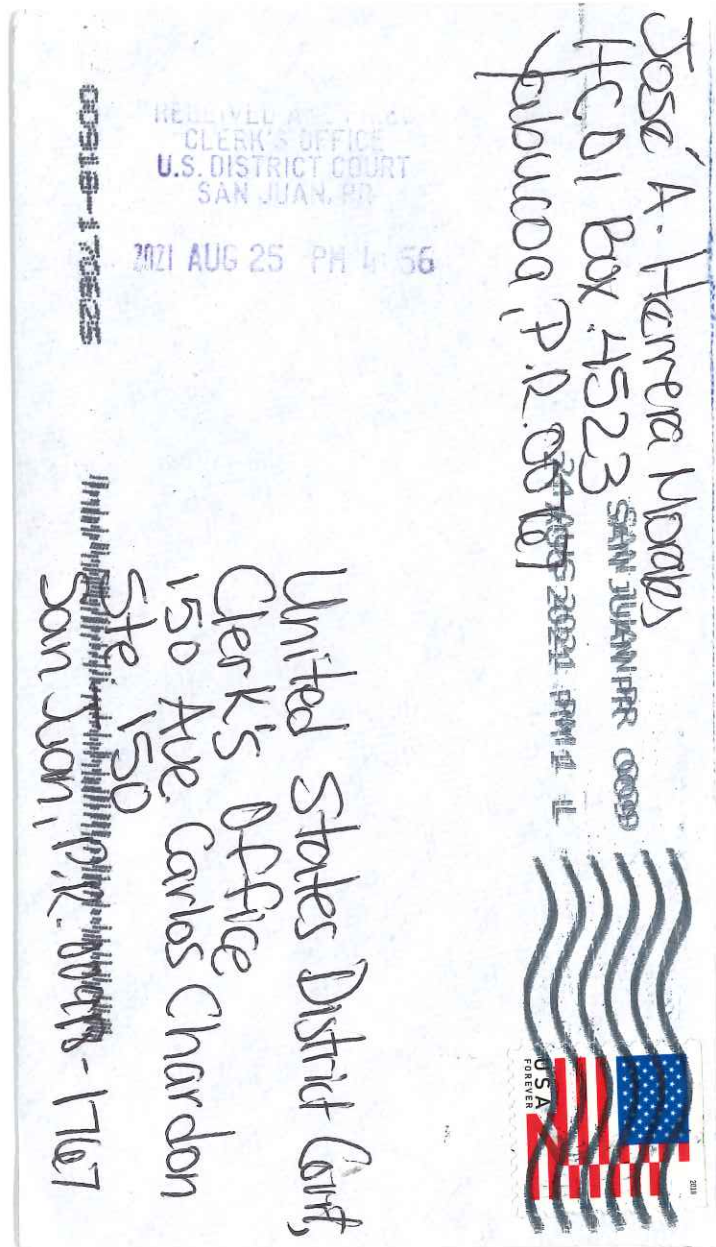 José A. Herrera Morales
HC01 Box 4523
Yabucoa, P.R.
SAN JUAN PR 009
24 AUG 2021 PM 1 L
USA
FOREVER
2018
RECEIVED AND FILED
CLERK'S OFFICE
U.S. DISTRICT COURT
SAN JUAN, PR
2021 AUG 25 PM 4 56
United States District Court,
Clerk's Office
150 Ave. Carlos Chardon
Ste 150
San Juan, P.R. 00918-1767
00918-170625